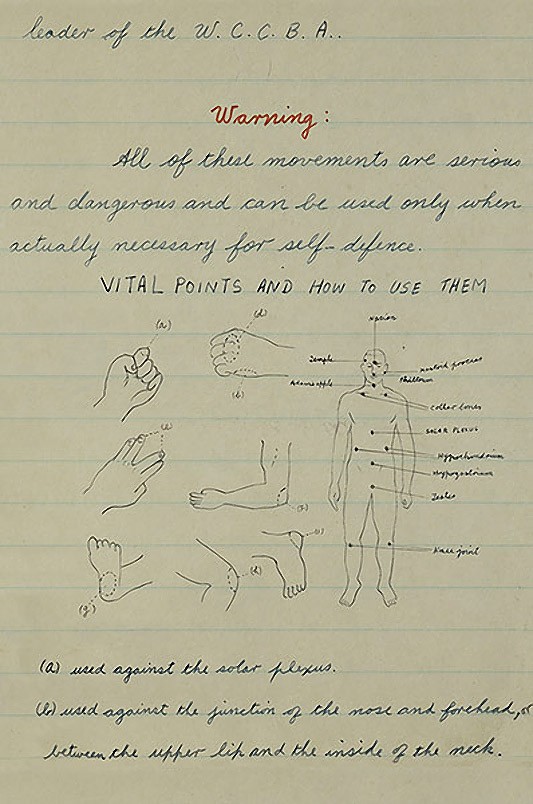 leader of the W. C. C. B. A..
Warning:
All of these movements are serious
and dangerous and can be used only when
actually necessary for self-defence.
VITAL POINTS AND HOW TO USE THEM
(a)
(d)
(b)
Nasion
Temple
Mastoid process
Adams apple
Philtrum
Collar bones
SOLAR PLEXUS
Hypochondrium
Hypogastrium
Testes
Knee joint
(g)
(h)
(a) used against the solar plexus.
(b) used against the junction of the nose and forehead, or
between the upper lip and the inside of the neck.